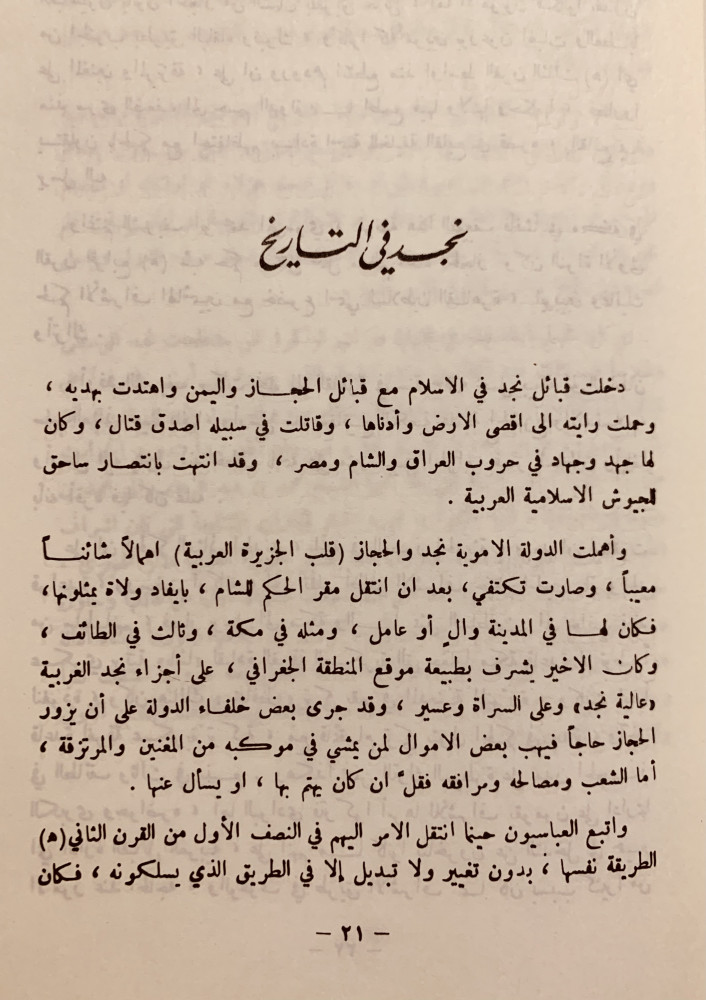 نجد في التاريخ
دخلت قبائل نجد في الاسلام مع قبائل الحجاز واليمن واهتدت بهديه ،
وحملت رايته الى اقصى الارض وأدناها ، وقاتلت في سبيله اصدق قتال ، وكان
لها جهد وجهاد في حروب العراق والشام ومصر ، وقد انتهت بانتصار ساحق
للجيوش الاسلامية العربية .
وأهملت الدولة الاموية نجد والحجاز (قلب الجزيرة العربية) اهمالاً شائناً
معيباً ، وصارت تكتفي، بعد ان انتقل مقر الحكم للشام ، بايفاد ولاة يمثلونها،
فكان لها في المدينة والٍ أو عامل ، ومثله في مكة ، وثالث في الطائف ،
وكان الاخير يشرف بطبيعة موقع المنطقة الجغرافي ، على أجزاء نجد الغربية
«عالية نجد» وعلى السراة وعسير ، وقد جرى بعض خلفاء الدولة على أن يزور
الحجاز حاجاً فيهب بعض الاموال لمن يمشي في موكبه من المغنين والمرتزقة ،
أما الشعب ومصالحه ومرافقه فقلّ ان كان يهتم بها ، او يسأل عنها .
واتبع العباسيون حينما انتقل الامر اليهم في النصف الأول من القرن الثاني(ه)
الطريقة نفسها ، بدون تغيير ولا تبديل إلا في الطريق الذي يسلكونه ، فكان
– ٢١ –